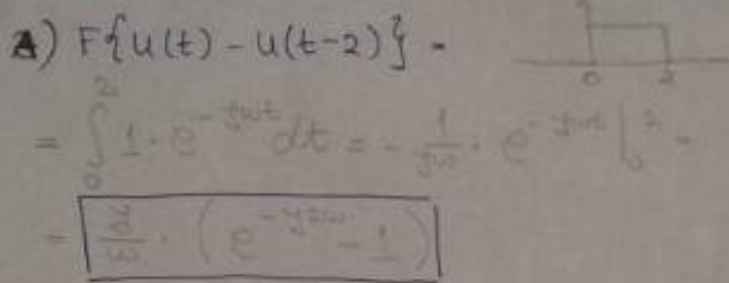 A) F{u(t) - u(t-2)} =
0 2
= ∫₀² 1 · e^(-jωt) dt = - 1/jω · e^(-jωt) |₀² =
= j/ω · (e^(-j2ω) - 1)